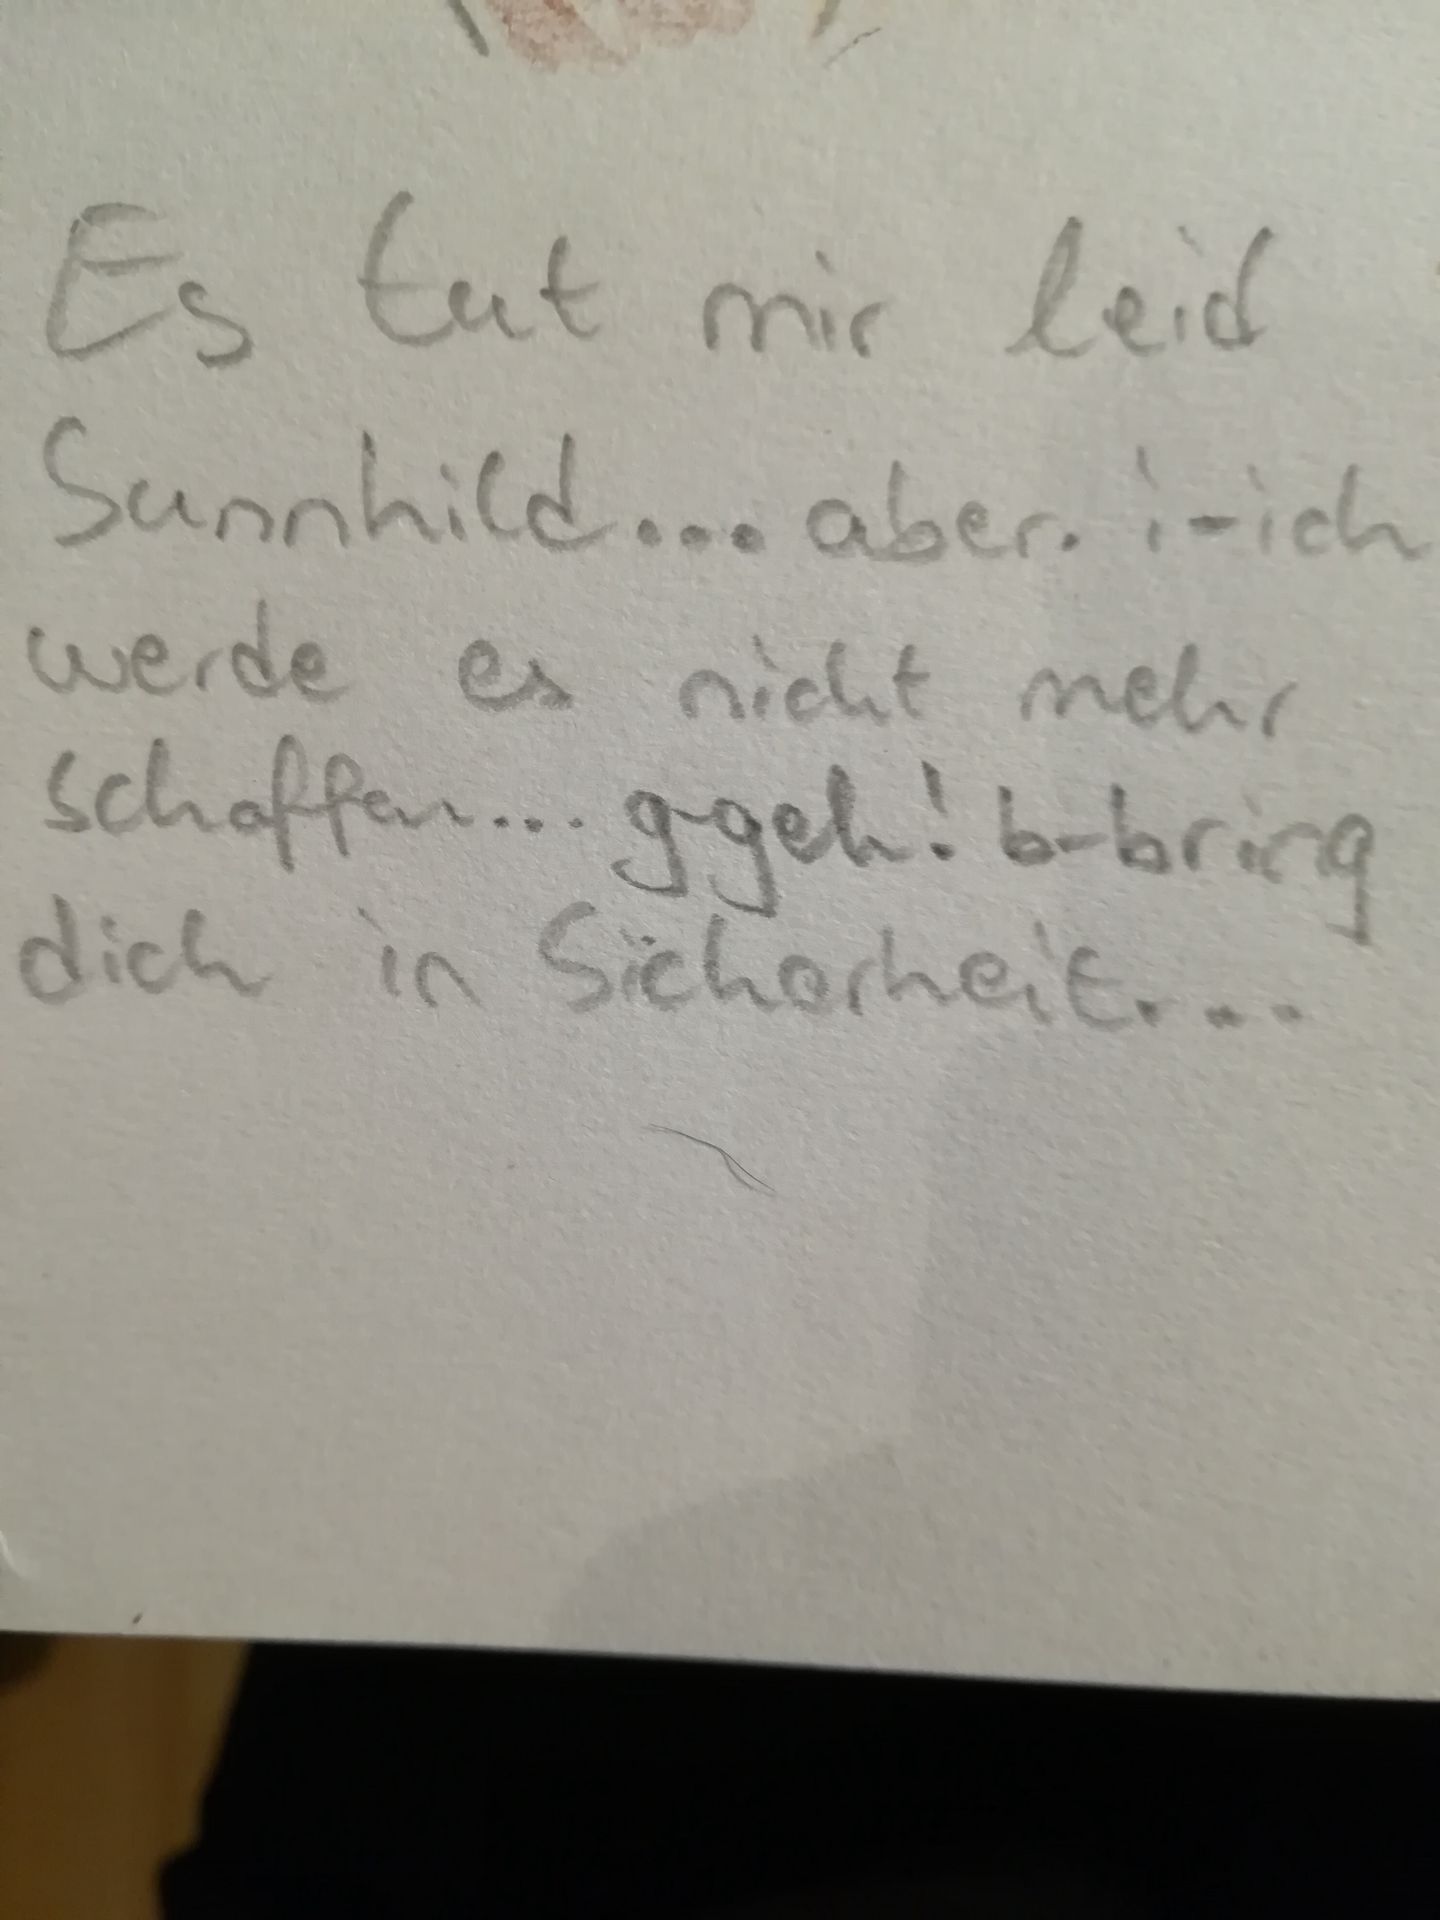 Es tut mir leid
Sunnhild... aber. i-ich
werde es nicht mehr
schaffen... g-geh! b-bring
dich in Sicherheit...